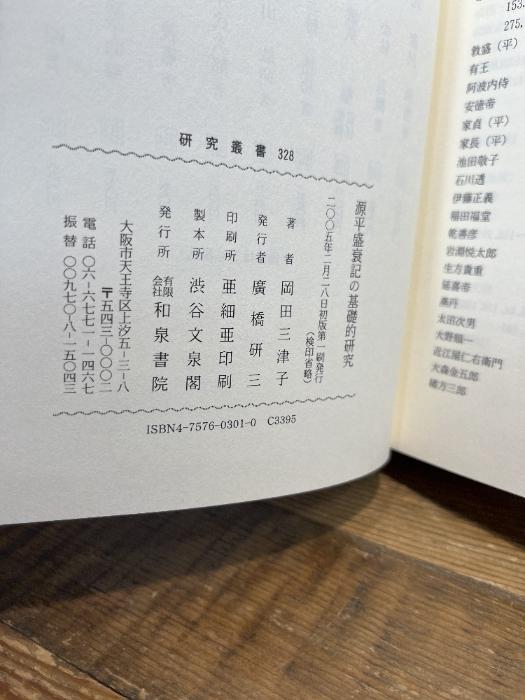 研究叢書 328
源平盛衰記の基礎的研究
二〇〇五年二月二八日初版第一刷発行
（検印省略）
著者 岡田三津子
発行者 廣橋研三
印刷所 亜細亜印刷
製本所 渋谷文泉閣
発行所 有限会社 和泉書院
大阪市天王寺区上汐五－三－八
〒五四三－〇〇〇二
電話 〇六－六七七一－一四六七
振替 〇〇九七〇－八－一五〇四三
ISBN4-7576-0301-0 C3395
153,
275,
敦盛（平）
有王
阿波内侍
安徳帝
家貞（平）
家長（平）
池田敬子
石川透
伊藤正義
稲田福堂
乾善彦
岩淵悦太郎
生方貴重
延喜帝
燕丹
太田次男
大野順一
近江屋仁右衛門
大森金五郎
緒方三郎